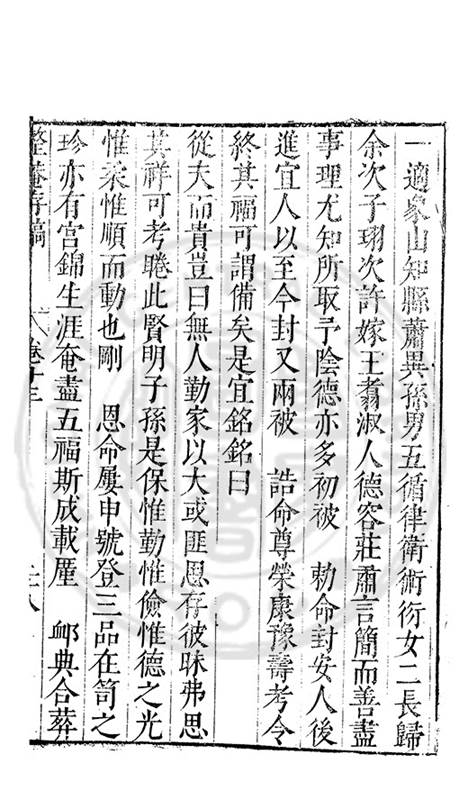 一適象山知縣蕭異孫男五循律衛術衍女二長歸
余次子珝次許嫁王翥淑人德容莊肅言簡而善盡
事理尤知所取予陰德亦多初被　勅命封安人後
進宜人以至今封又兩被　誥命尊榮康豫壽考令
終其福可謂備矣是宜銘銘曰
從夫而貴豈曰無人勤家以大或匪思存彼昧弗思
其祥可考睠此賢明子孫是保惟勤惟儉惟德之光
惟柔惟順而動也剛　恩命屢申號登三品在笥之
珍亦有宮錦生涯奄盡五福斯成載厪　卹典合葬
整菴存稿　卷十三